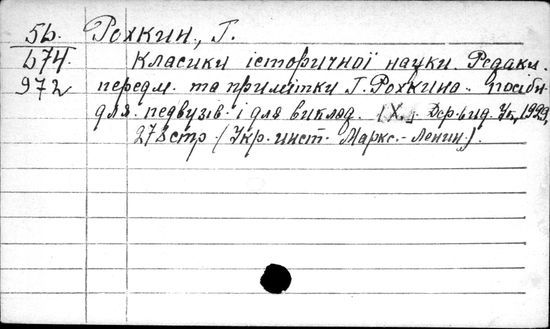 5б. Рохкин, Г.
674. Класики історичної науки. Редакц.
972 передм. та примітки Г. Рохкина. Посібн.
для педвузів. і для виклад. [Х.]. Держ.вид. Ук., 1929,
278 стр. (Укр. инст. Маркс.-Ленин.).